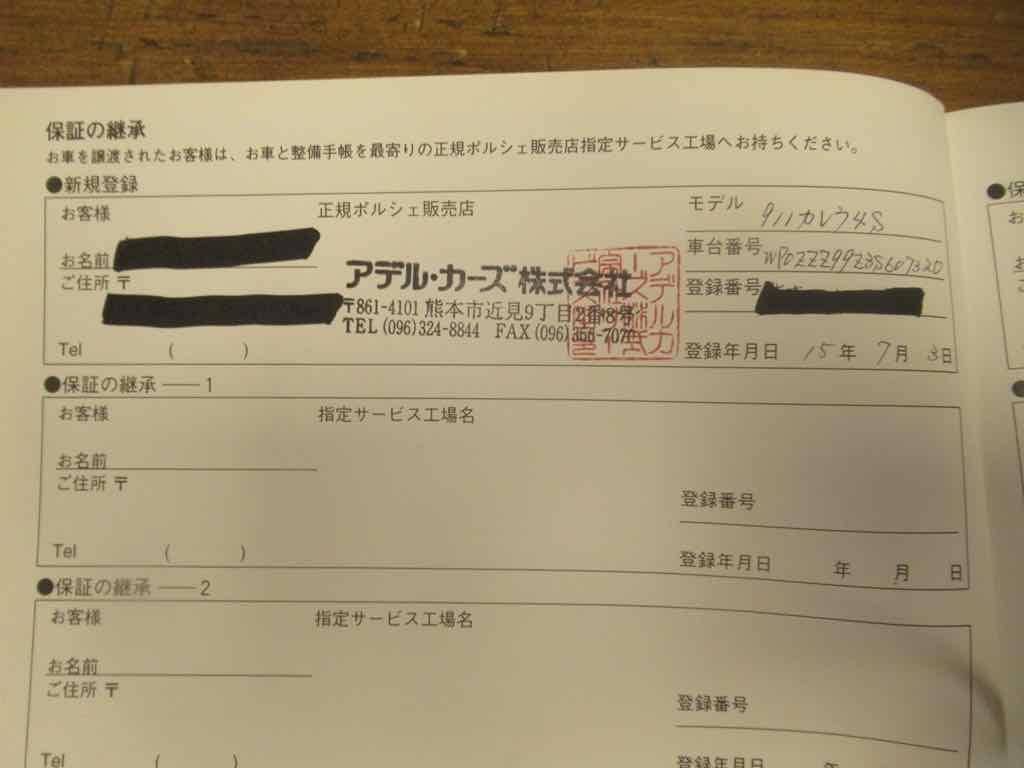 保証の継承
お車を譲渡されたお客様は、お車と整備手帳を最寄りの正規ポルシェ販売店指定サービス工場へお持ちください。
●新規登録
お客様
正規ポルシェ販売店
モデル 911カレラ4S
お名前
車台番号 WP0ZZZ99Z3S607320
ご住所 〒
アデル・カーズ株式会社
登録番号
〒861-4101 熊本市近見9丁目2番8号
TEL (096)324-8844 FAX (096)356-7070
Tel ( )
登録年月日 15年 7月 3日
●保証の継承 ── 1
お客様
指定サービス工場名
お名前
ご住所 〒
登録番号
Tel ( )
登録年月日 年 月 日
●保証の継承 ── 2
お客様
指定サービス工場名
お名前
ご住所 〒
登録番号
Tel ( )
登録年月日 年